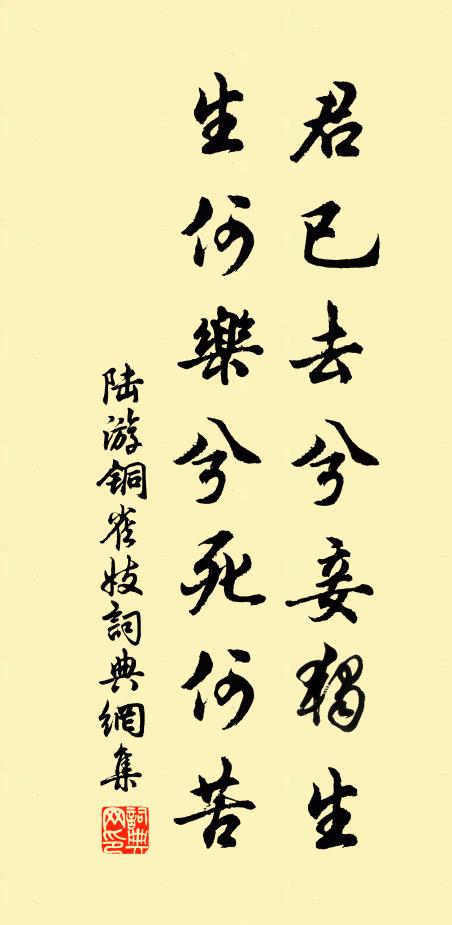 君已去兮妾獨生
生何樂兮死何苦
陆游銅雀妓詞典網集
詞典網印